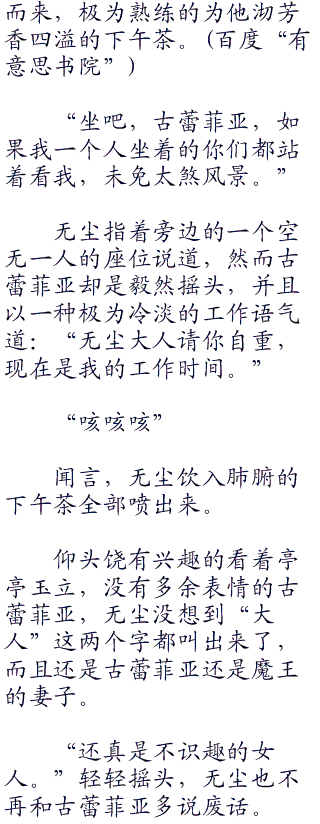 而来，极为熟练的为他沏芳
香四溢的下午茶。(百度“有
意思书院”)
“坐吧，古蕾菲亚，如
果我一个人坐着的你们都站
着看我，未免太煞风景。”
无尘指着旁边的一个空
无一人的座位说道，然而古
蕾菲亚却是毅然摇头，并且
以一种极为冷淡的工作语气
道：“无尘大人请你自重，
现在是我的工作时间。”
“咳咳咳”
闻言，无尘饮入肺腑的
下午茶全部喷出来。
仰头饶有兴趣的看着亭
亭玉立，没有多余表情的古
蕾菲亚，无尘没想到“大
人”这两个字都叫出来了，
而且还是古蕾菲亚还是魔王
的妻子。
“还真是不识趣的女
人。”轻轻摇头，无尘也不
再和古蕾菲亚多说废话。